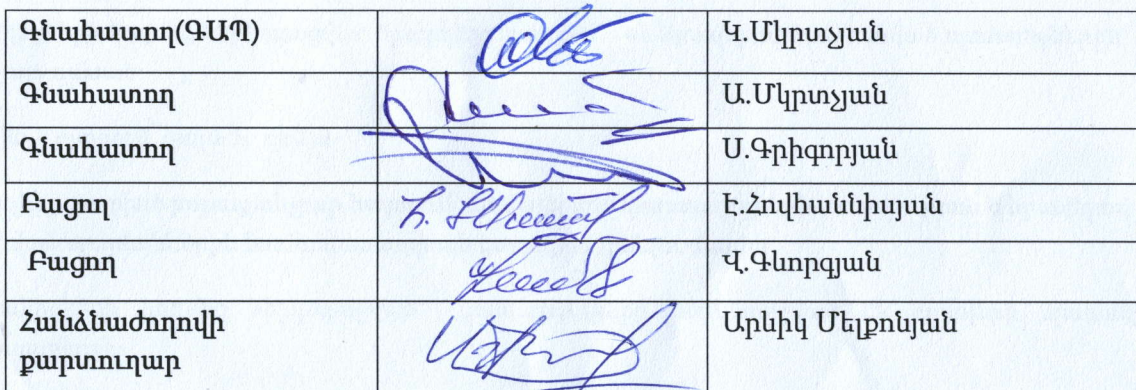 Գնահատող(ԳԱՊ) Կ.Մկրտչյան
Գնահատող Ա.Մկրտչյան
Գնահատող Ս.Գրիգորյան
Բացող Է.Հովհաննիսյան
Բացող Վ.Գևորգյան
Հանձնաժողովի Արևիկ Մելքոնյան
քարտուղար